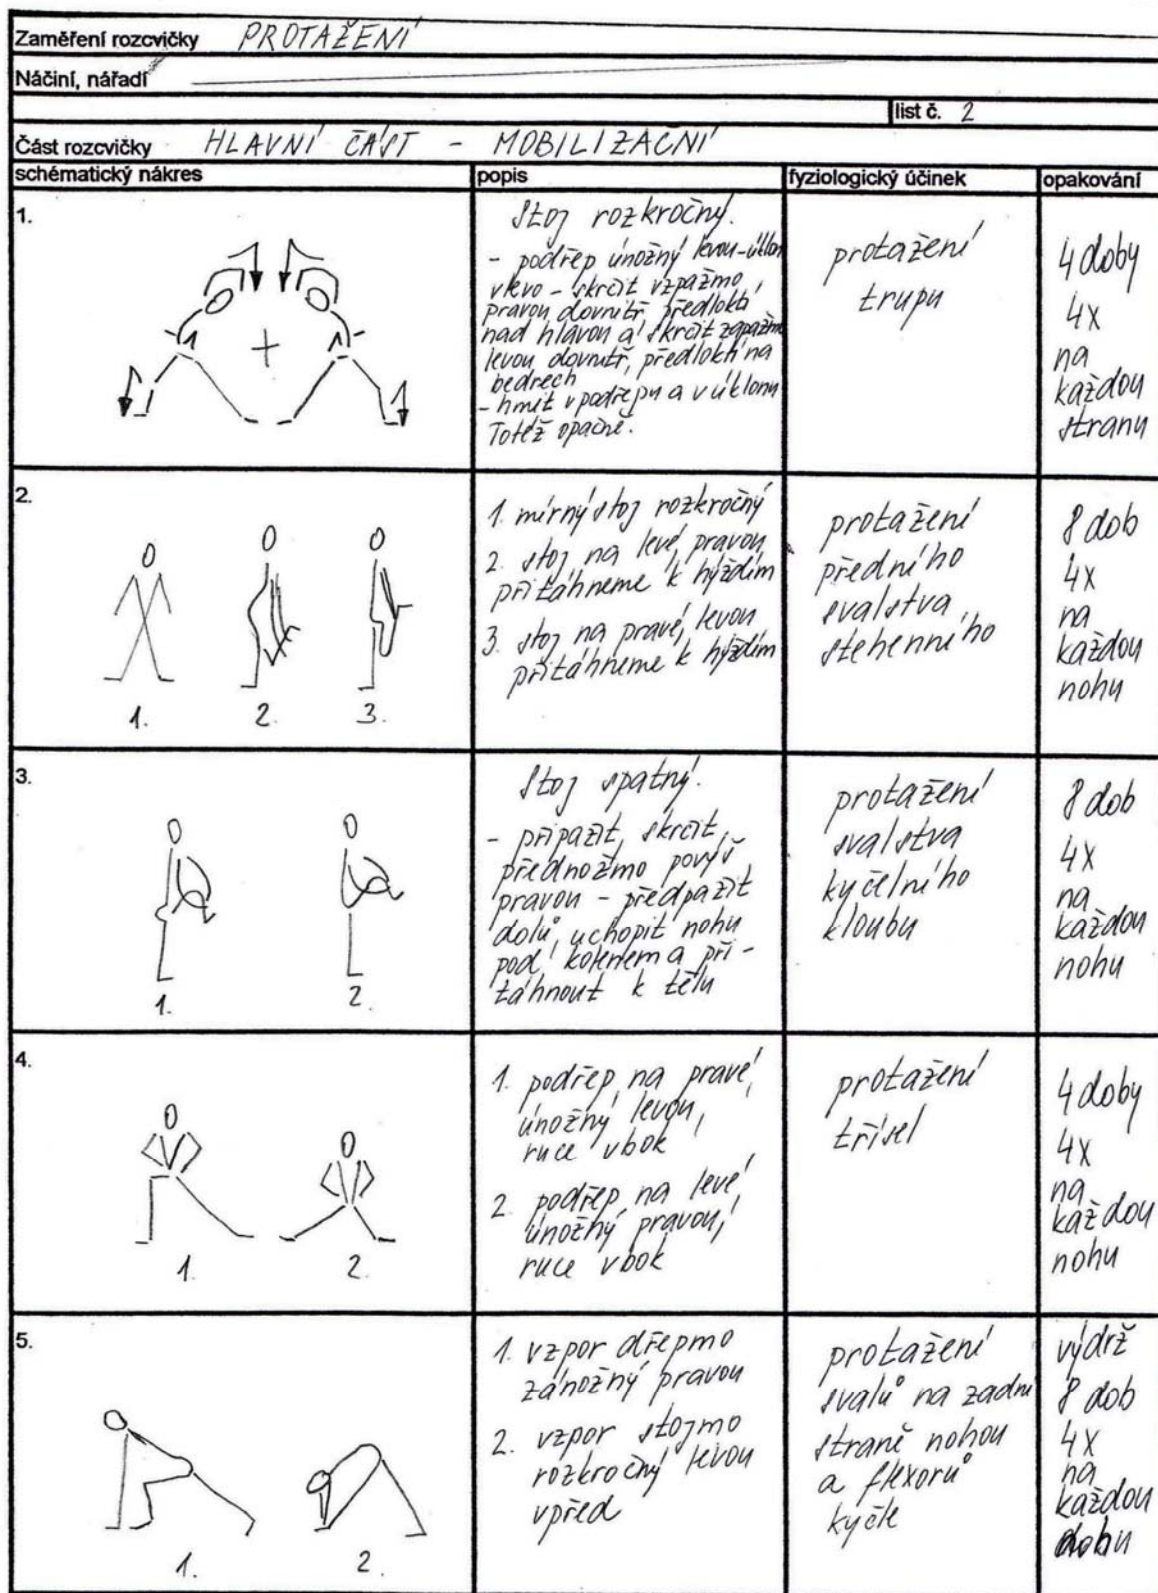 Zaměření rozcvičky PROTAŽENÍ
Náčiní, nářadí
list č. 2
Část rozcvičky HLAVNÍ ČÁST - MOBILIZAČNÍ
schématický nákres popis fyziologický účinek opakování
1.
Stoj rozkročný.
- podřep únožný levou - úklon
vlevo - skrčit vzpažmo
pravou dovnitř, předloktí
nad hlavou a skrčit zapažmo
levou dovnitř, předloktí na
bedrech
- hmit v podřepu a v úklonu
Totéž opačně.
protažení
trupu
4 doby
4x
na
každou
stranu
2.
1. 2. 3.
1. mírný stoj rozkročný
2. stoj na levé, pravou
přitáhneme k hýždím
3. stoj na pravé, levou
přitáhneme k hýždím
protažení
předního
svalstva
stehenního
8 dob
4x
na
každou
nohu
3.
1. 2.
Stoj spatný.
- připažit, skrčit
přednožmo povýš
pravou - předpažit
dolů, uchopit nohu
pod kolenem a při-
táhnout k tělu
protažení
svalstva
kyčelního
kloubu
8 dob
4x
na
každou
nohu
4.
1. 2.
1. podřep na pravé,
únožný levou,
ruce vbok
2. podřep na levé,
únožný pravou,
ruce vbok
protažení
třísel
4 doby
4x
na
každou
nohu
5.
1. 2.
1. vzpor dřepmo
zánožný pravou
2. vzpor stojmo
rozkročný levou
vpřed
protažení
svalů na zadní
straně nohou
a flexorů
kyčle
výdrž
8 dob
4x
na
každou
dobu